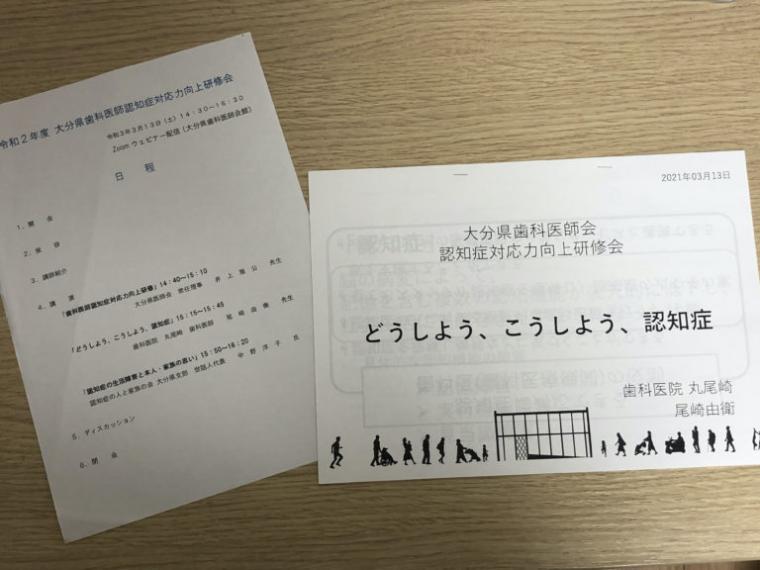 令和2年度 大分県歯科医師認知症対応力向上研修会
令和3年3月13日(土)14:30~16:30
Zoom ウェビナー配信(大分県歯科医師会館)
日 程
1. 開 会
2. 挨 拶
3. 講師紹介
4. 講 演
「歯科医師認知症対応力向上研修」14:40~15:10
大分県歯科医師会 常任理事 井 上 雅 公 先生
「どうしよう、こうしよう、認知症」15:15~15:45
歯科医院 丸尾崎 歯科医師 尾 崎 由 衛 先生
「認知症の生活障害と本人・家族の思い」15:50~16:20
認知症の人と家族の会 大分県支部 世話人代表 中 野 洋 子 氏
5. ディスカッション
6. 閉 会
2021年03月13日
大分県歯科医師会
認知症対応力向上研修会
どうしよう、こうしよう、認知症
歯科医院 丸尾崎
尾崎由衛